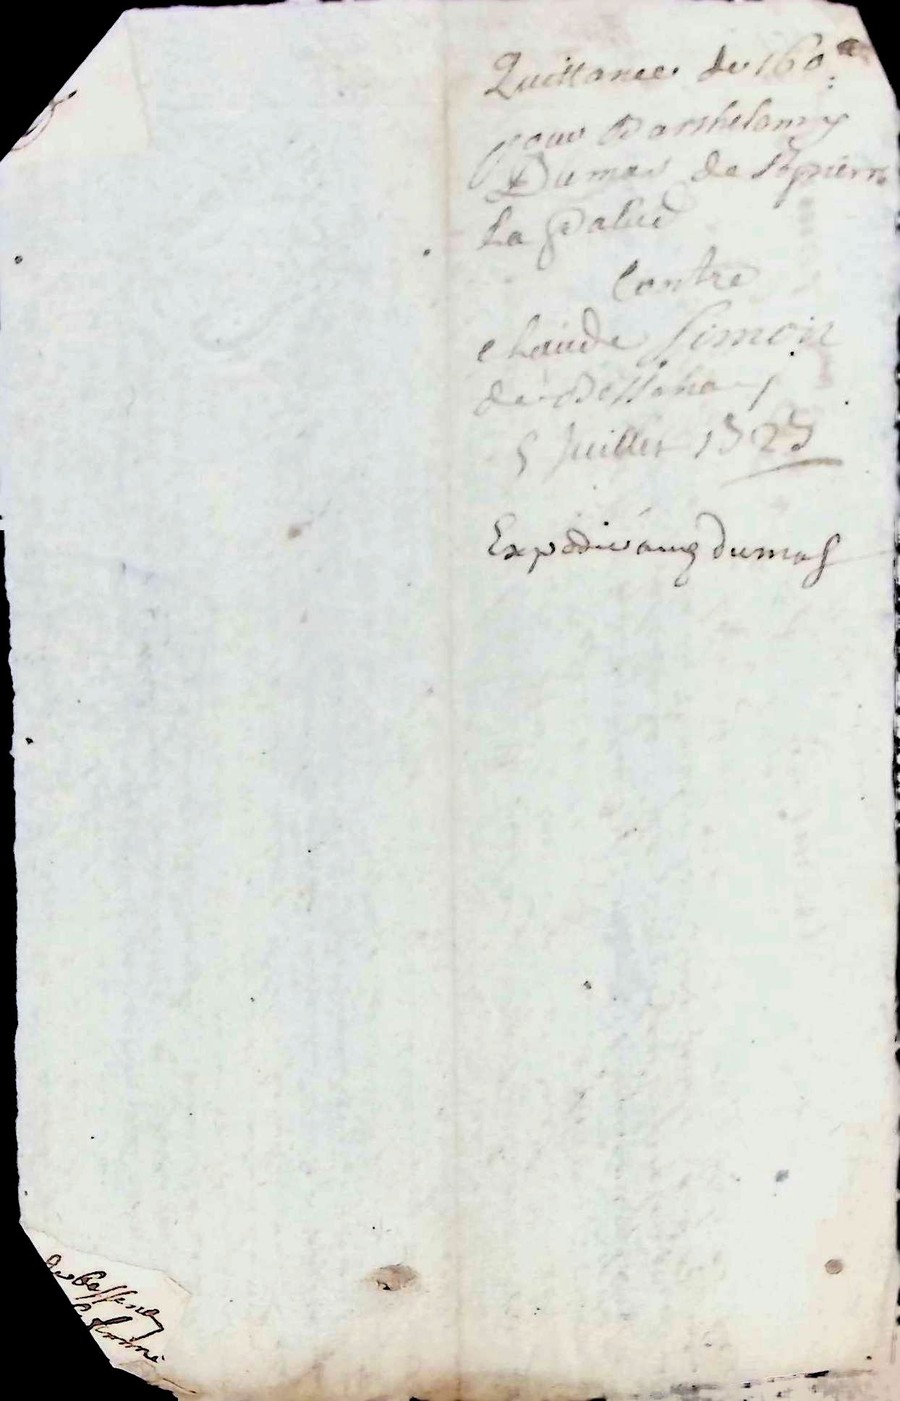 Quittance de 160ᵗᵗ
pour Barthelomy
Dumas de St pierre
La Palud
Contre
Claude Simon
de Bessena
5 Juillet
Expedié aud dumas
de bassenay